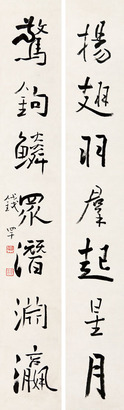 揚翅羽羣起星月
驚鉤鱗眾潛淵瀛
錢罕